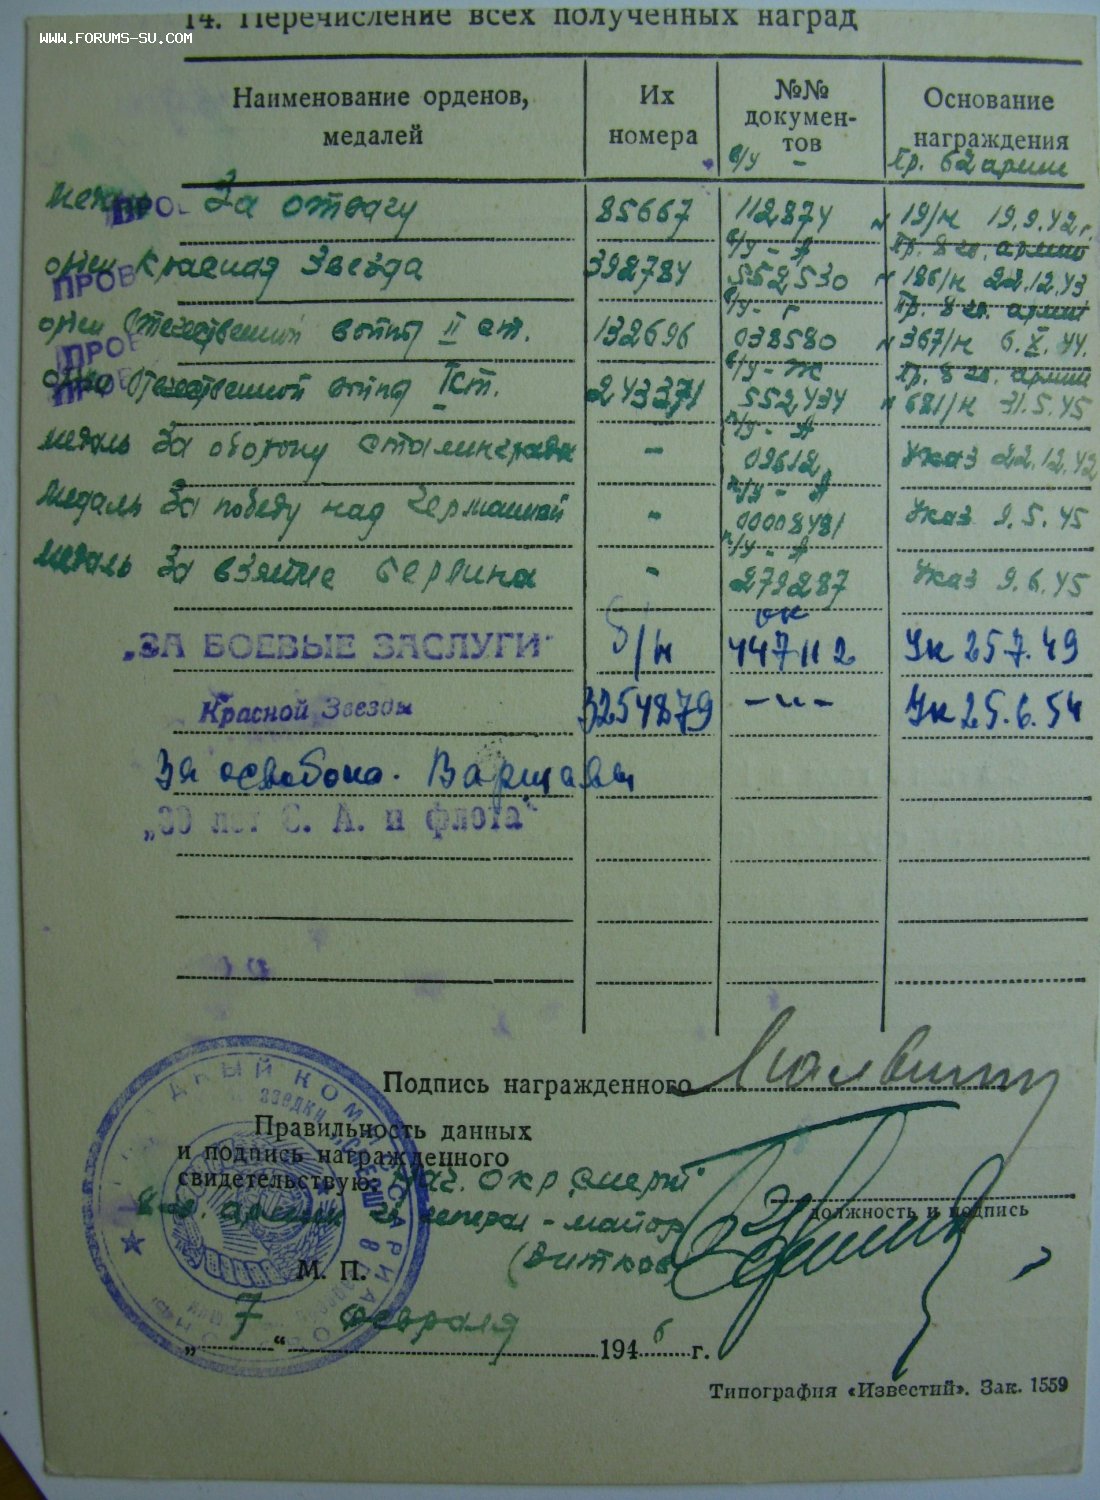 WWW.FORUMS-SU.COM
14. Перечисление всех полученных наград
Наименование орденов, медалей
Их номера
№№ документов
Основание награждения
в/у - Пр. 62 армии
медаль За отвагу 85667 112874 № 19/н 19.9.42 г.
ПРОВ
в/у - А Пр. 8 гв. армии
орден Красная Звезда 392784 552530 № 186/н 22.12.43
ПРОВ
в/у - г Пр. 8 гв. армии
орден Отечественной войны II ст. 132696 038580 № 367/н 6.X.44.
ПРОВ
в/у - Ж Пр. 8 гв. армии
орден Отечественной войны I ст. 243371 552434 № 681/н 31.5.45
ПРОВ
п/у - А
медаль За оборону Сталинграда - 09612 Указ 22.12.42
п/у - А
медаль За победу над Германией - 00008481 Указ 9.5.45
п/у - А
медаль За взятие Берлина - 279287 Указ 9.6.45
„ЗА БОЕВЫЕ ЗАСЛУГИ" б/н 447112 Ук 25.7.49
Красной Звезды 3254879 -"- Ук 25.6.54
За освобожд. Варшавы
„30 лет С. А. и флота"
Подпись награжденного
Правильность данных
и подпись награжденного
свидетельствую: Нач. ОКР „Смерш"
8 гв. армии генерал-майор
должность и подпись
(Витков)
М. П.
„7" февраля 1946 г.
Типография «Известий». Зак. 1559